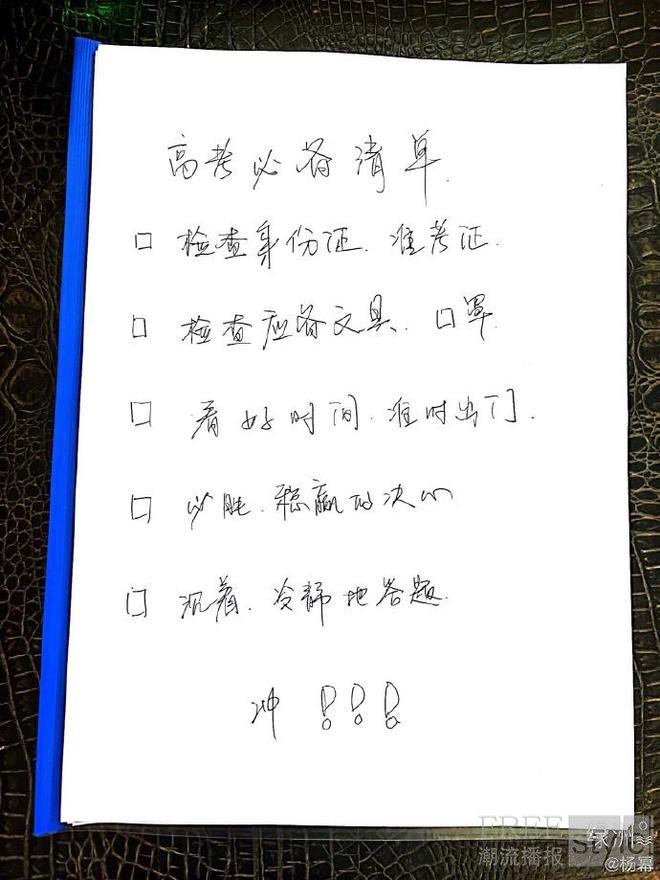 高考必备清单.
□ 检查身份证. 准考证.
□ 检查应备文具. 口罩
□ 看好时间. 准时出门.
□ 必胜. 稳赢的决心
□ 沉着. 冷静地答题.
冲 !!!
FREE style
潮流播报
绿洲
@杨幂